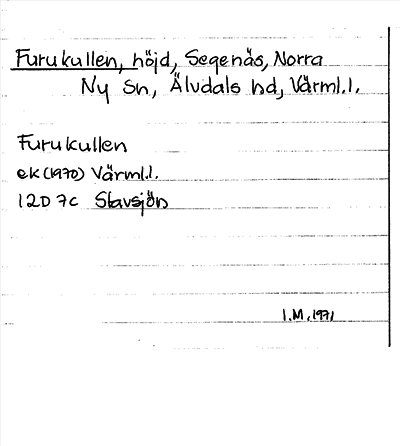 Furukullen, höjd, Segenäs, Norra
Ny Sn, Älvdals hd, Värml.l.
Furukullen
ek (1970) Värml.l.
12D 7c Stavsjön
I.M. 1971